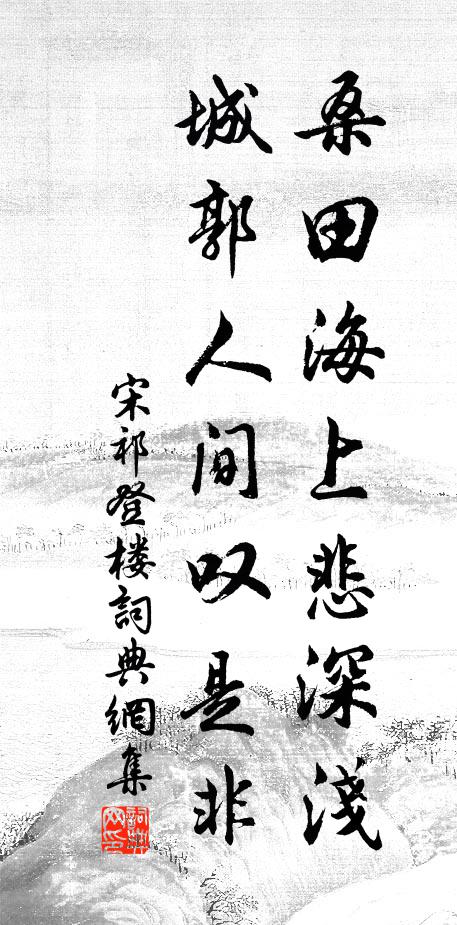 桑田海上悲深淺
城郭人间叹是非
宋祁登楼詞典網集